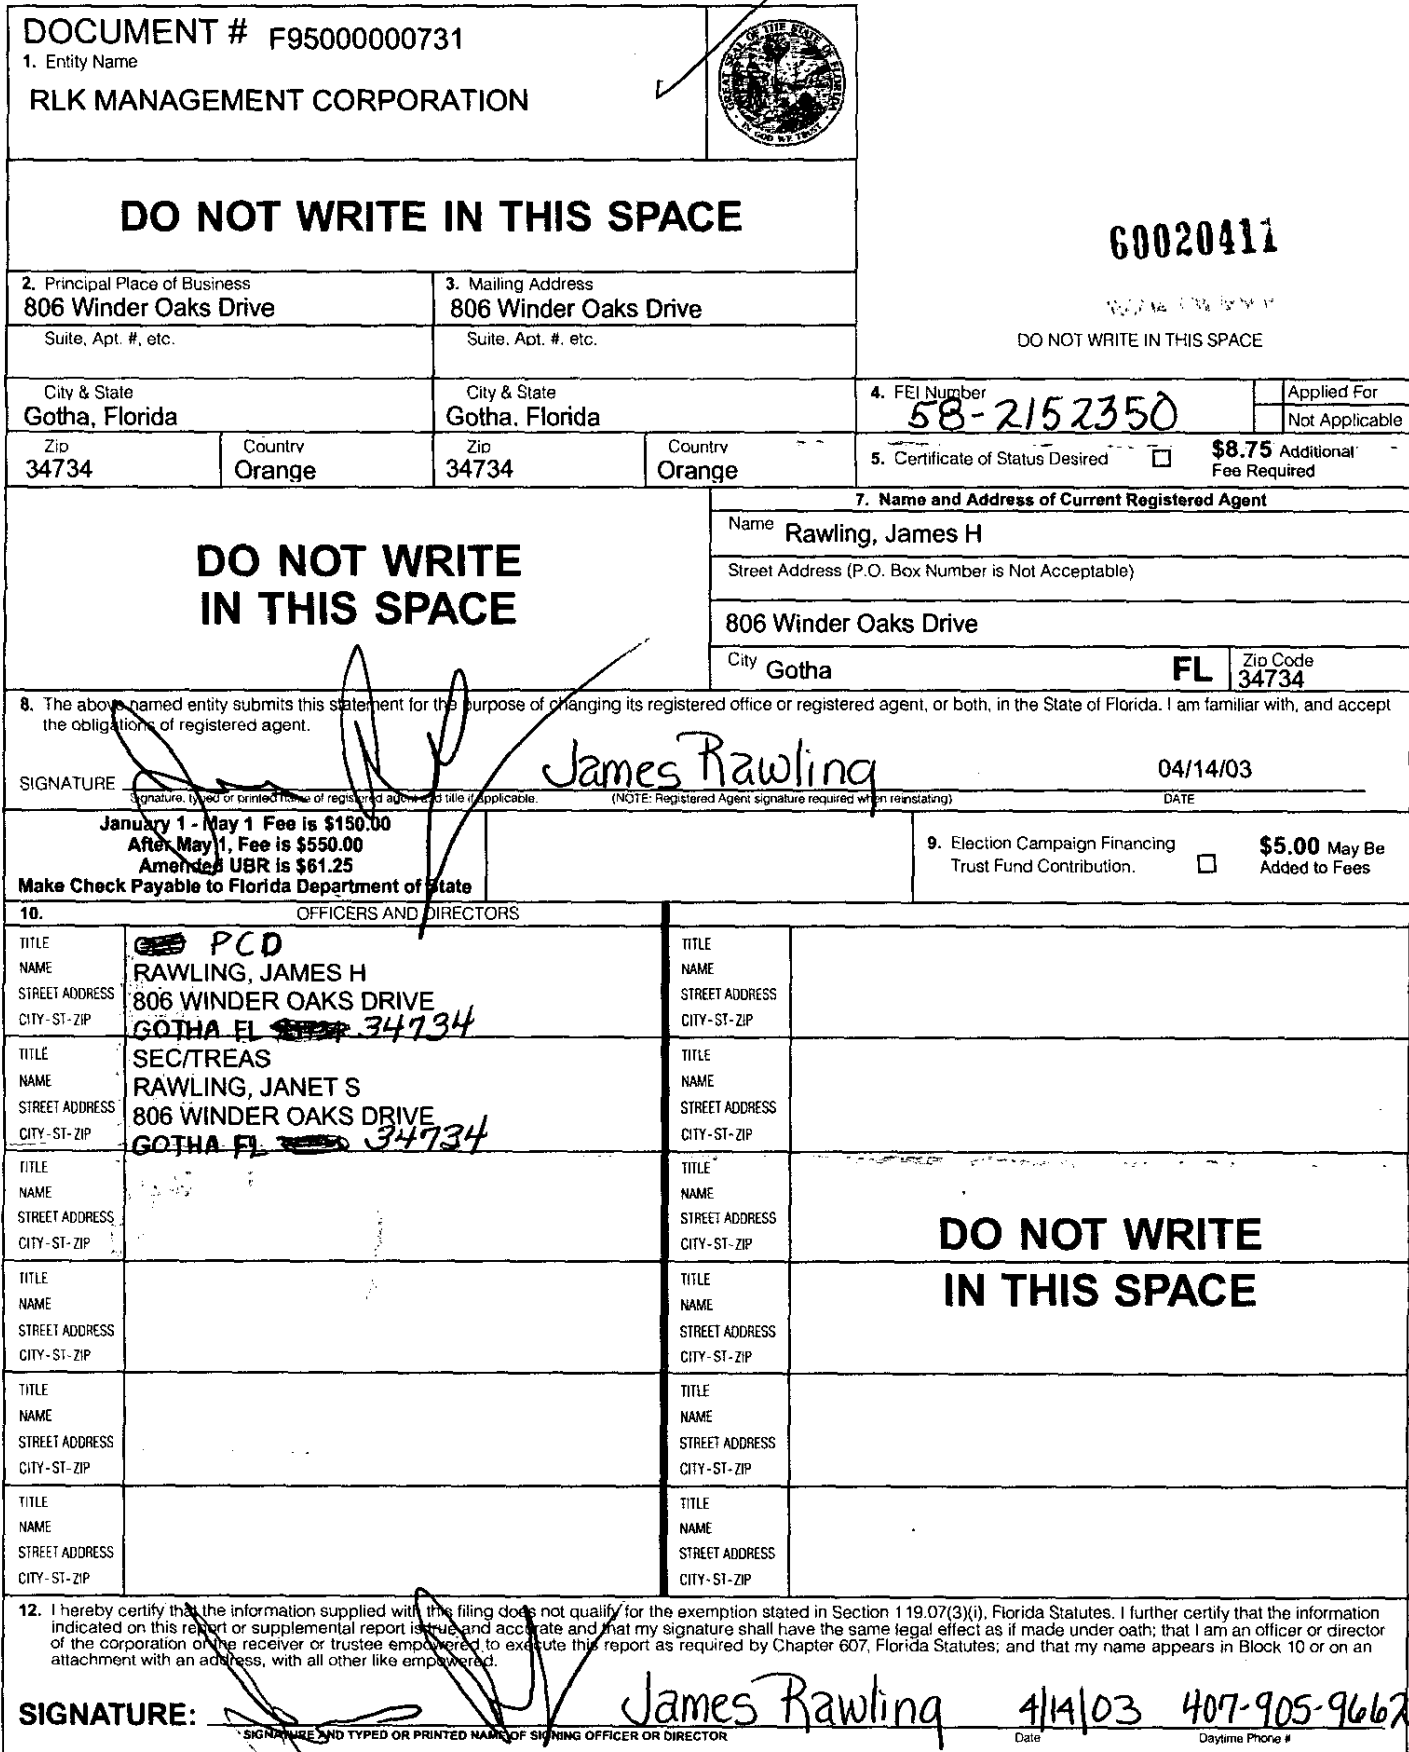 DOCUMENT # F95000000731
1. Entity Name
RLK MANAGEMENT CORPORATION
GREAT SEAL OF THE STATE OF FLORIDA
IN GOD WE TRUST
DO NOT WRITE IN THIS SPACE
60020411
DO NOT WRITE IN THIS SPACE
2. Principal Place of Business
806 Winder Oaks Drive
3. Mailing Address
806 Winder Oaks Drive
Suite, Apt. #, etc.
Suite, Apt. #, etc.
City & State
Gotha, Florida
City & State
Gotha, Florida
4. FEI Number
58-2152350
Applied For
Not Applicable
Zip
34734
Country
Orange
Zip
34734
Country
Orange
5. Certificate of Status Desired
$8.75 Additional
Fee Required
DO NOT WRITE
IN THIS SPACE
7. Name and Address of Current Registered Agent
Name Rawling, James H
Street Address (P.O. Box Number is Not Acceptable)
806 Winder Oaks Drive
City Gotha FL Zip Code
34734
8. The above named entity submits this statement for the purpose of changing its registered office or registered agent, or both, in the State of Florida. I am familiar with, and accept
the obligations of registered agent.
SIGNATURE James Rawling 04/14/03
Signature, typed or printed name of registered agent and title if applicable. (NOTE: Registered Agent signature required when reinstating) DATE
January 1 - May 1 Fee is $150.00
After May 1, Fee is $550.00
Amended UBR is $61.25
Make Check Payable to Florida Department of State
9. Election Campaign Financing
Trust Fund Contribution.
$5.00 May Be
Added to Fees
10. OFFICERS AND DIRECTORS
TITLE PCD
NAME RAWLING, JAMES H
STREET ADDRESS 806 WINDER OAKS DRIVE
CITY-ST-ZIP GOTHA FL 34734
TITLE
NAME
STREET ADDRESS
CITY-ST-ZIP
TITLE SEC/TREAS
NAME RAWLING, JANET S
STREET ADDRESS 806 WINDER OAKS DRIVE
CITY-ST-ZIP GOTHA FL 34734
TITLE
NAME
STREET ADDRESS
CITY-ST-ZIP
TITLE
NAME
STREET ADDRESS
CITY-ST-ZIP
TITLE
NAME
STREET ADDRESS
CITY-ST-ZIP
DO NOT WRITE
IN THIS SPACE
TITLE
NAME
STREET ADDRESS
CITY-ST-ZIP
TITLE
NAME
STREET ADDRESS
CITY-ST-ZIP
TITLE
NAME
STREET ADDRESS
CITY-ST-ZIP
TITLE
NAME
STREET ADDRESS
CITY-ST-ZIP
TITLE
NAME
STREET ADDRESS
CITY-ST-ZIP
TITLE
NAME
STREET ADDRESS
CITY-ST-ZIP
12. I hereby certify that the information supplied with this filing does not qualify for the exemption stated in Section 119.07(3)(i), Florida Statutes. I further certify that the information
indicated on this report or supplemental report is true and accurate and that my signature shall have the same legal effect as if made under oath; that I am an officer or director
of the corporation or the receiver or trustee empowered to execute this report as required by Chapter 607, Florida Statutes; and that my name appears in Block 10 or on an
attachment with an address, with all other like empowered.
SIGNATURE: James Rawling 4/14/03 407-905-9662
SIGNATURE AND TYPED OR PRINTED NAME OF SIGNING OFFICER OR DIRECTOR Date Daytime Phone #